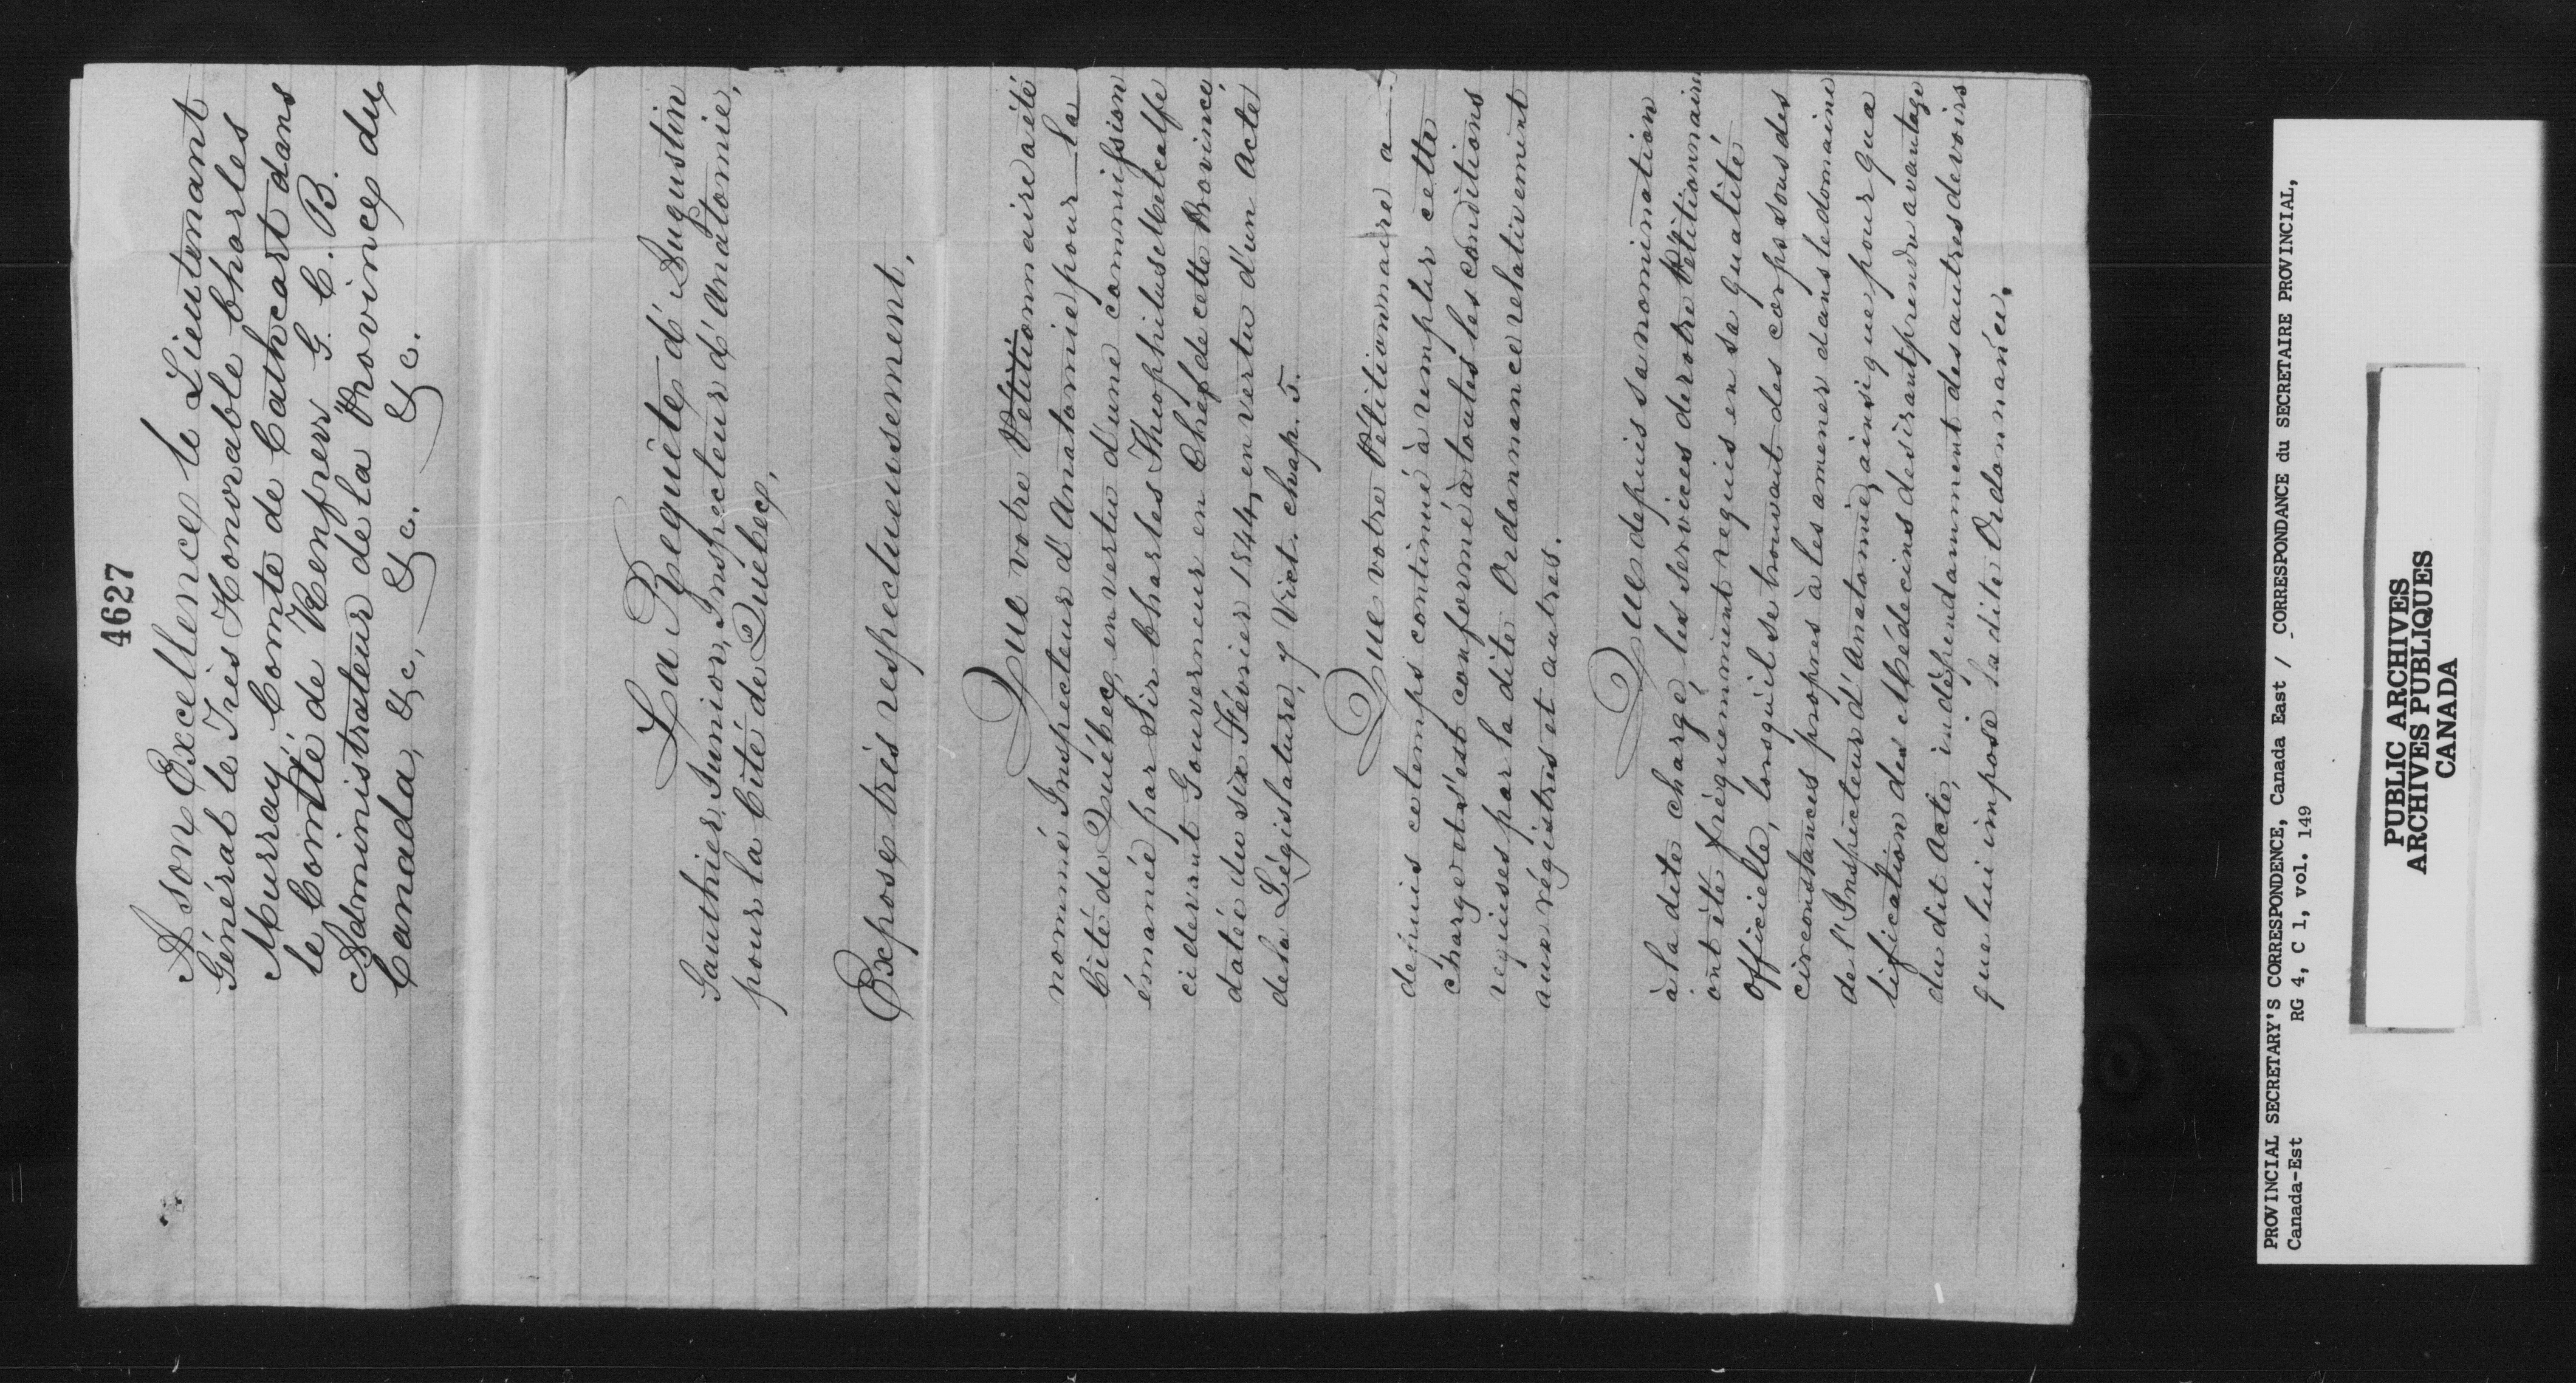 4627
A son Excellence le Lieutenant
Général le Très Honorable Charles
Murray, Comte de Cathcart dans
le Comté de Renfrew G. C. B.
Administrateur de la Province du
Canada, &c, &c. &c. &c.
La Requête d'Augustin
Gauthier, Junior, Inspecteur d'Anatomie,
pour la Cité de Québec,
Expose très respectueusement,
Que votre Pétitionnaire a été
nommé Inspecteur d'Anatomie pour la
Cité de Québec, en vertu d'une commission
émanée par Sir Charles Theophilus Metcalfe
ci devant Gouverneur en Chef de cette Province
datée du six Février 1844, en vertu d'un Acte
de la Législature, 7 Vict. chap. 5.
Que votre Pétitionnaire a
depuis ce temps continué à remplir cette
charge et s'est conformé à toutes les conditions
requises par la dite Ordonnance relativement
aux régistres et autres.
Que depuis sa nomination
à la dite charge, les services de votre Pétitionnaire
ont été fréquemment requis en sa qualité
officielle, lorsqu'il se trouvait des corps sous des
circonstances propres à les amener dans le domaine
de l'Inspecteur d'Anatomie, ainsi que pour qua
lification des Médecins désirant prendre avantage
du dit Acte, indépendamment des autres devoirs
que lui impose la dite Ordonnance.
PROVINCIAL SECRETARY'S CORRESPONDENCE, Canada East / CORRESPONDANCE du SECRETAIRE PROVINCIAL,
Canada-Est RG 4, C 1, vol. 149
PUBLIC ARCHIVES
ARCHIVES PUBLIQUES
CANADA